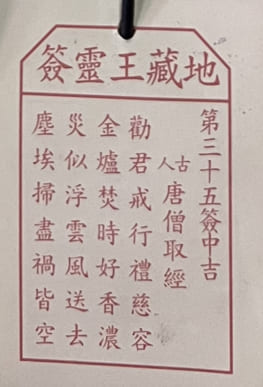 地藏王靈籤
第三十五籤中吉
古人唐僧取經
勸君戒行禮慈容
金爐焚時好香濃
災似浮雲風送去
塵埃掃盡禍皆空